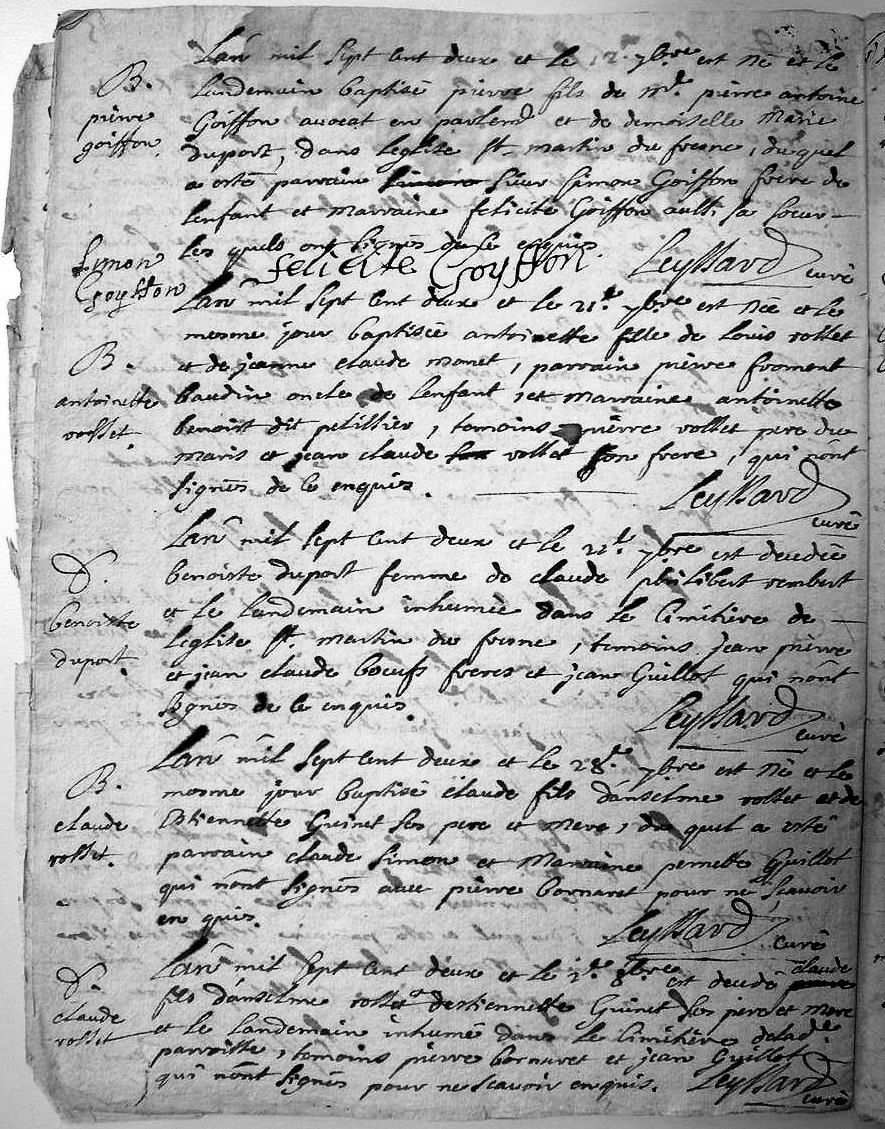 B.
pierre
goiffon
Lan mil sept cent deux et le 12e 7bre est né et le
landemain baptisé pierre fils de mr pierre antoine
Goiffon avocat en parlemt et de demoiselle Marie
duport, dans leglise st martin du fresne, du quel
a esté parrain sieur Simon Goiffon frere de
lenfant et Marraine felicité Goiffon aussi sa soeur
les quels ont signés de ce enquis
Simon
Goyffon
felicite Goyffon
Leyssard curé
B.
antoinette
rosset
Lan mil sept cent deux et le 21e 7bre est née et le
mesme jour baptisée antoinette fille de Louis rosset
et de jeanne claude monet, parrain pierre froment
baudin oncle de lenfant, et Marraine antoinette
benoist dit pelissier, temoins pierre rosset pere du
maris et jean claude rosset son frere, qui nont
signés de ce enquis.
Leyssard
curé
D.
benoiste
duport
Lan mil sept cent deux et le 22e 7bre est decedée
benoiste duport femme de claude philibert rembert
et le landemain inhumée dans le Cimitiere de
leglise st. martin du fresne, temoins jean pierre
et jean claude boeufs freres et jean Guillot qui nont
signés de ce enquis.
Leyssard
curé
B.
claude
rosset.
Lan mil sept cent deux et le 28e 7bre est né et le
mesme jour baptisé claude fils danselme rosset et de
Estiennette Guinet ses pere et mere, du quel a esté
parrain claude Simon et Marraine pernette Guillot
qui nont signés avec pierre bornaret pour ne scavoir
en quis.
Leyssard
curé
D.
claude
rosset
Lan mil sept cent deux et le 2e 8bre est decedé claude
fils danselme rosset et destiennette Guinet ses pere et mere
et le landemain inhumé dans le Cimitiere de lade
parroisse, temoins pierre bornaret et jean Guillot
qui nont signés pour ne scavoir enquis.
Leyssard
curé